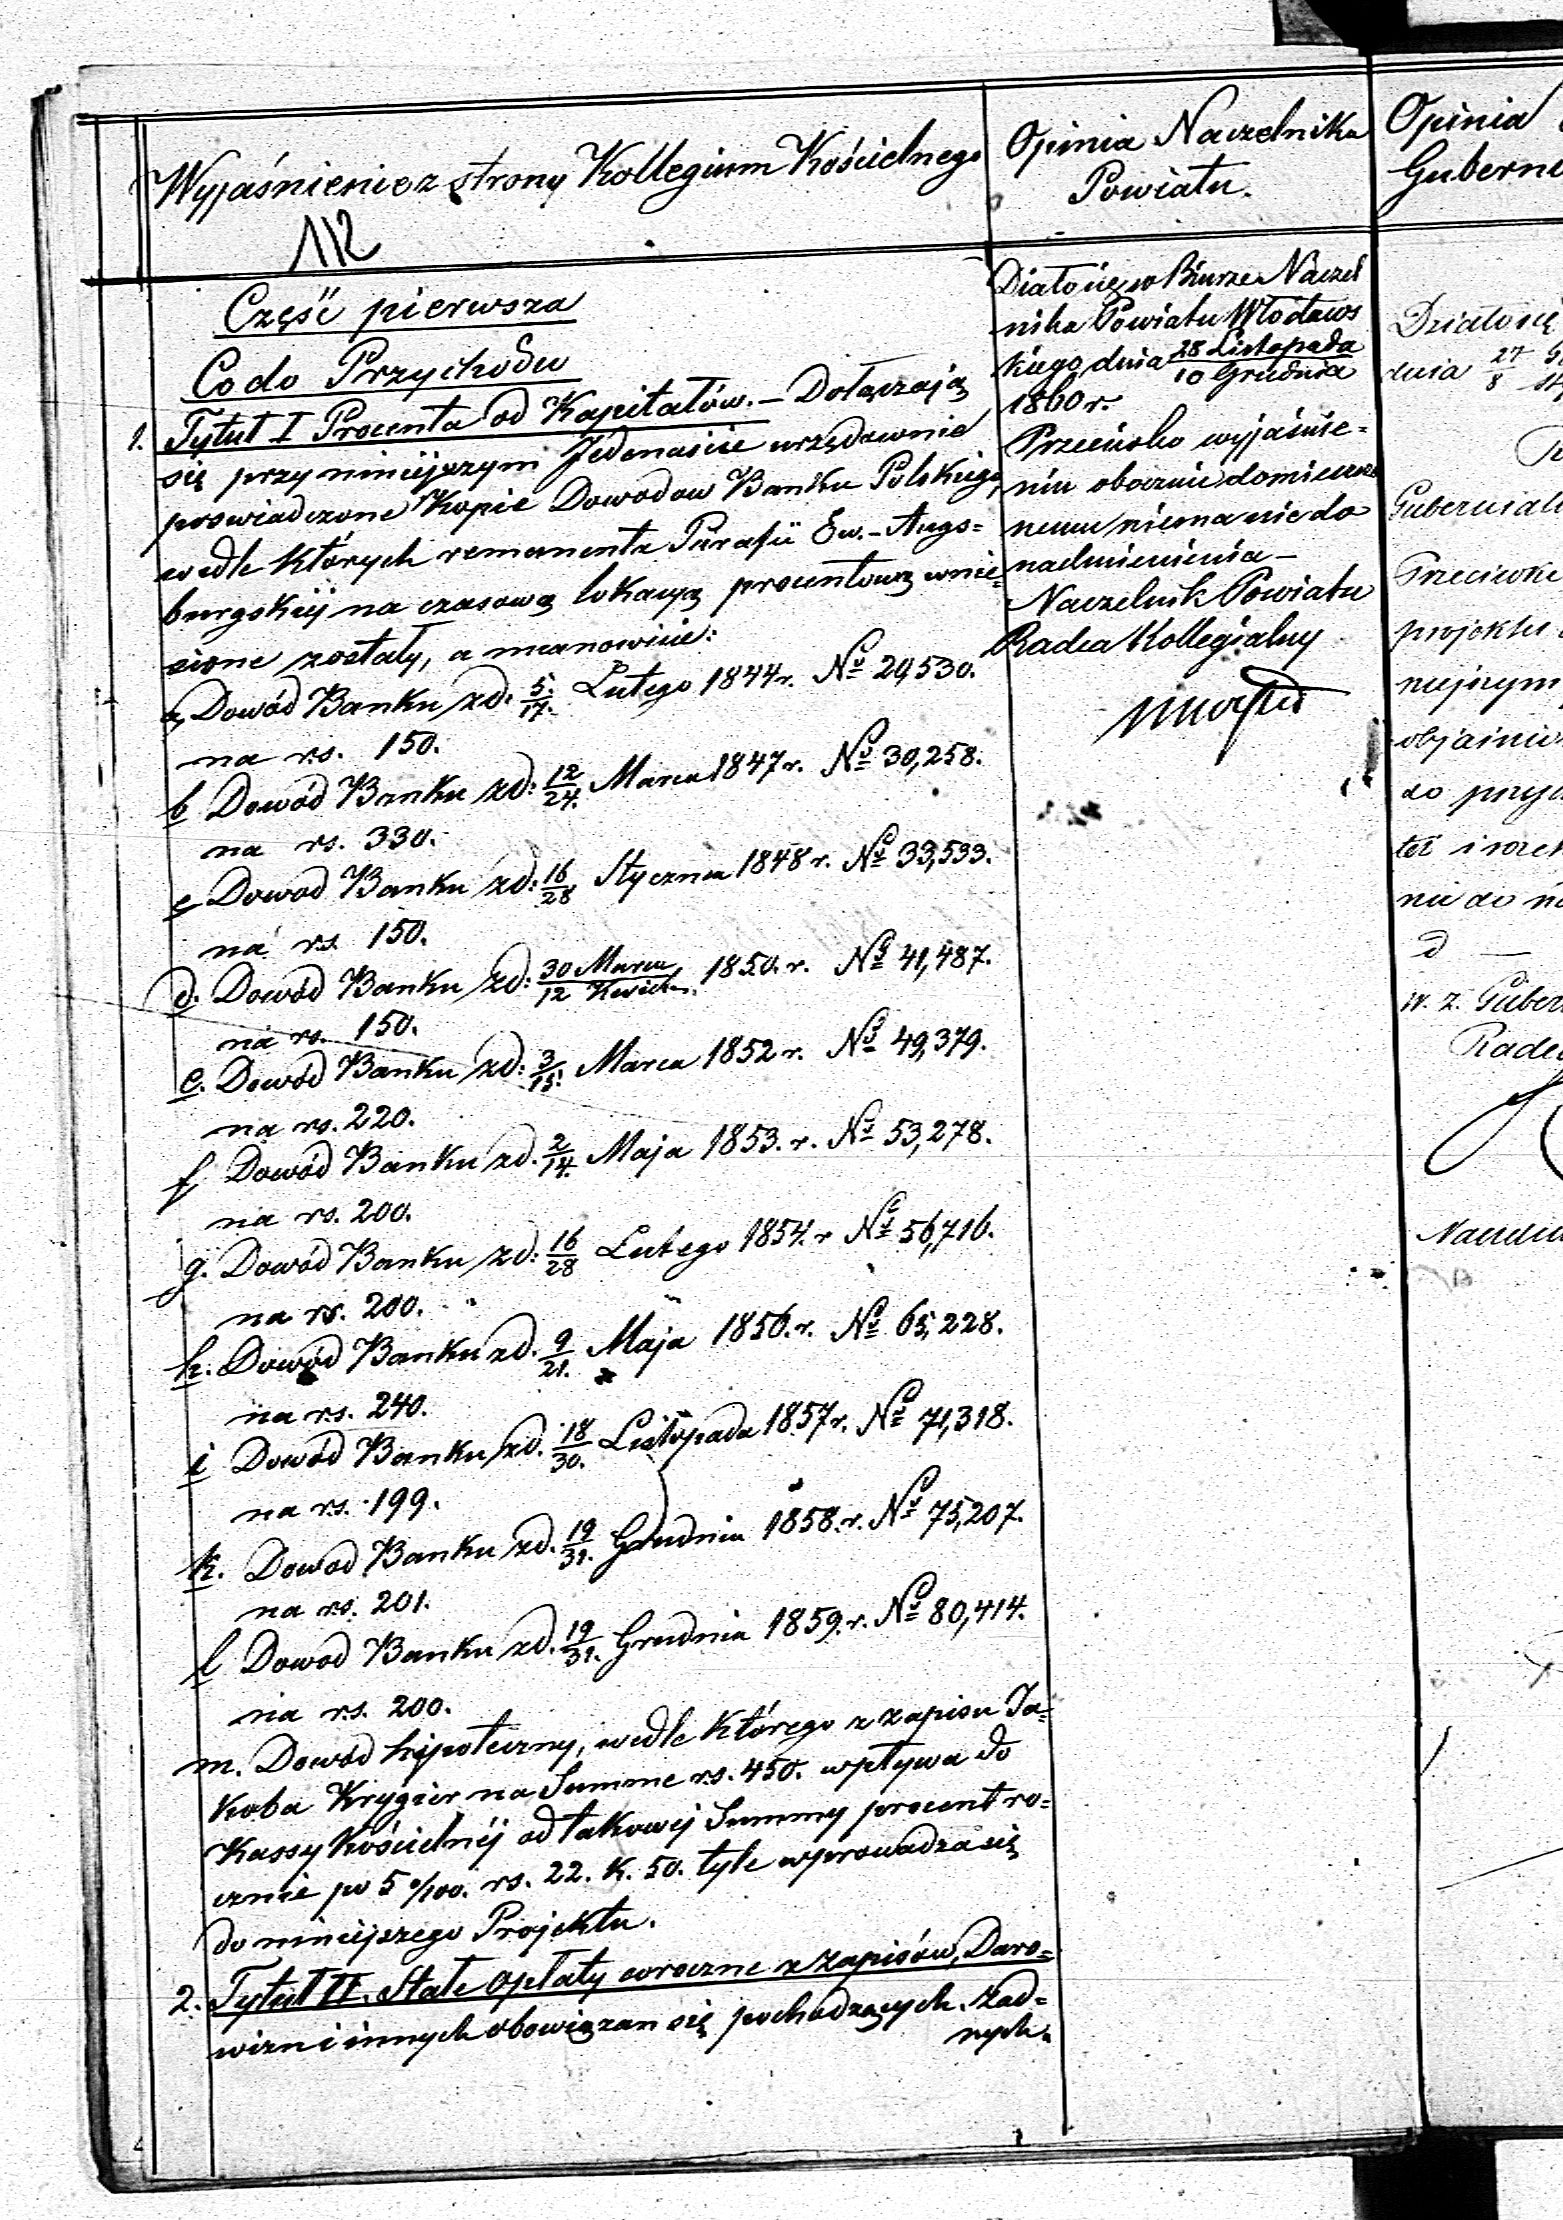 Wyjaśnienie z strony Kollegium Kościelnego
112
Część pierwsza
Co do Przychodu
1. Tytuł I Procenta od Kapitałów. — Dołączają
się przy niniejszym Jedenaście urzędownie
poswiadczone Kopie Dowodow Banku Polskiego,
wedle których remanenta Parafii Ew.-Augs=
burgskiej na czasową lokacyą procentową wnie=
sione zostały, a mianowicie:
a, Dowód Banku zd. 5/17. Lutego 1844 r. No 29,530.
na rs. 150.
b Dowód Banku zd: 12/24. Marca 1847 r. No 30,258.
na rs. 330.
c Dowod Banku zd: 16/28 Stycznia 1848 r. No 33,533.
na rs 150.
d. Dowód Banku zd: 30 Marca/12 Kwietn. 1850. r. No 41,487.
na rs. 150.
e. Dowód Banku zd: 3/15. Marca 1852 r. No 49,379.
na rs. 220.
f, Dowód Banku zd. 2/14. Maja 1853. r. No 53,278.
na rs. 200.
g. Dowód Banku zd: 16/28 Lutego 1854. r No 56,716.
na rs. 200.
h. Dowód Banku zd. 9/21. Maja 1856. r. No 65,228.
na rs. 240.
i Dowód Banku zd. 18/30. Listopada 1857 r. No 71,318.
na rs. 199.
k. Dowod Banku zd. 19/31. Grudnia 1858. r. No 75,207.
na rs. 201.
l Dowod Banku zd. 19/31. Grudnia 1859. r. No 80,414.
na rs. 200.
m. Dowód hipoteczny, wedle którego z zapisu Ja=
koba Krygier na Summe rs. 450. wpływa do
Kassy Kościelnéj od takowej Summy procent ro=
cznie po 5 %00. rs. 22. K. 50. tyle wprowadza się
do niniejszego Projektu.
2. Tytuł II. Stałe opłaty coroczne z zapisów, Daro=
wizn i innych obowiązan się pochodzących. Żad=
nych.
Opinia Naczelnika
Powiatu.
Działo się w Biurze Naczel
nika Powiatu Włodaws
kiego dnia 28 Listopada/10 Grudnia
1860 r.
Przeciwko wyjaśnie=
niu obocznie domieszczo
nemu niema nic do
nadmienienia —
Naczelnik Powiatu
Radca Kollegialny
Opinia
Guberni
Działo się
dnia 27/8
Gubernialn
Przeciwko
projektu
niejszym
objaśnie
do przyc
też i
nic do n
d —
w. z. Guber
Radca